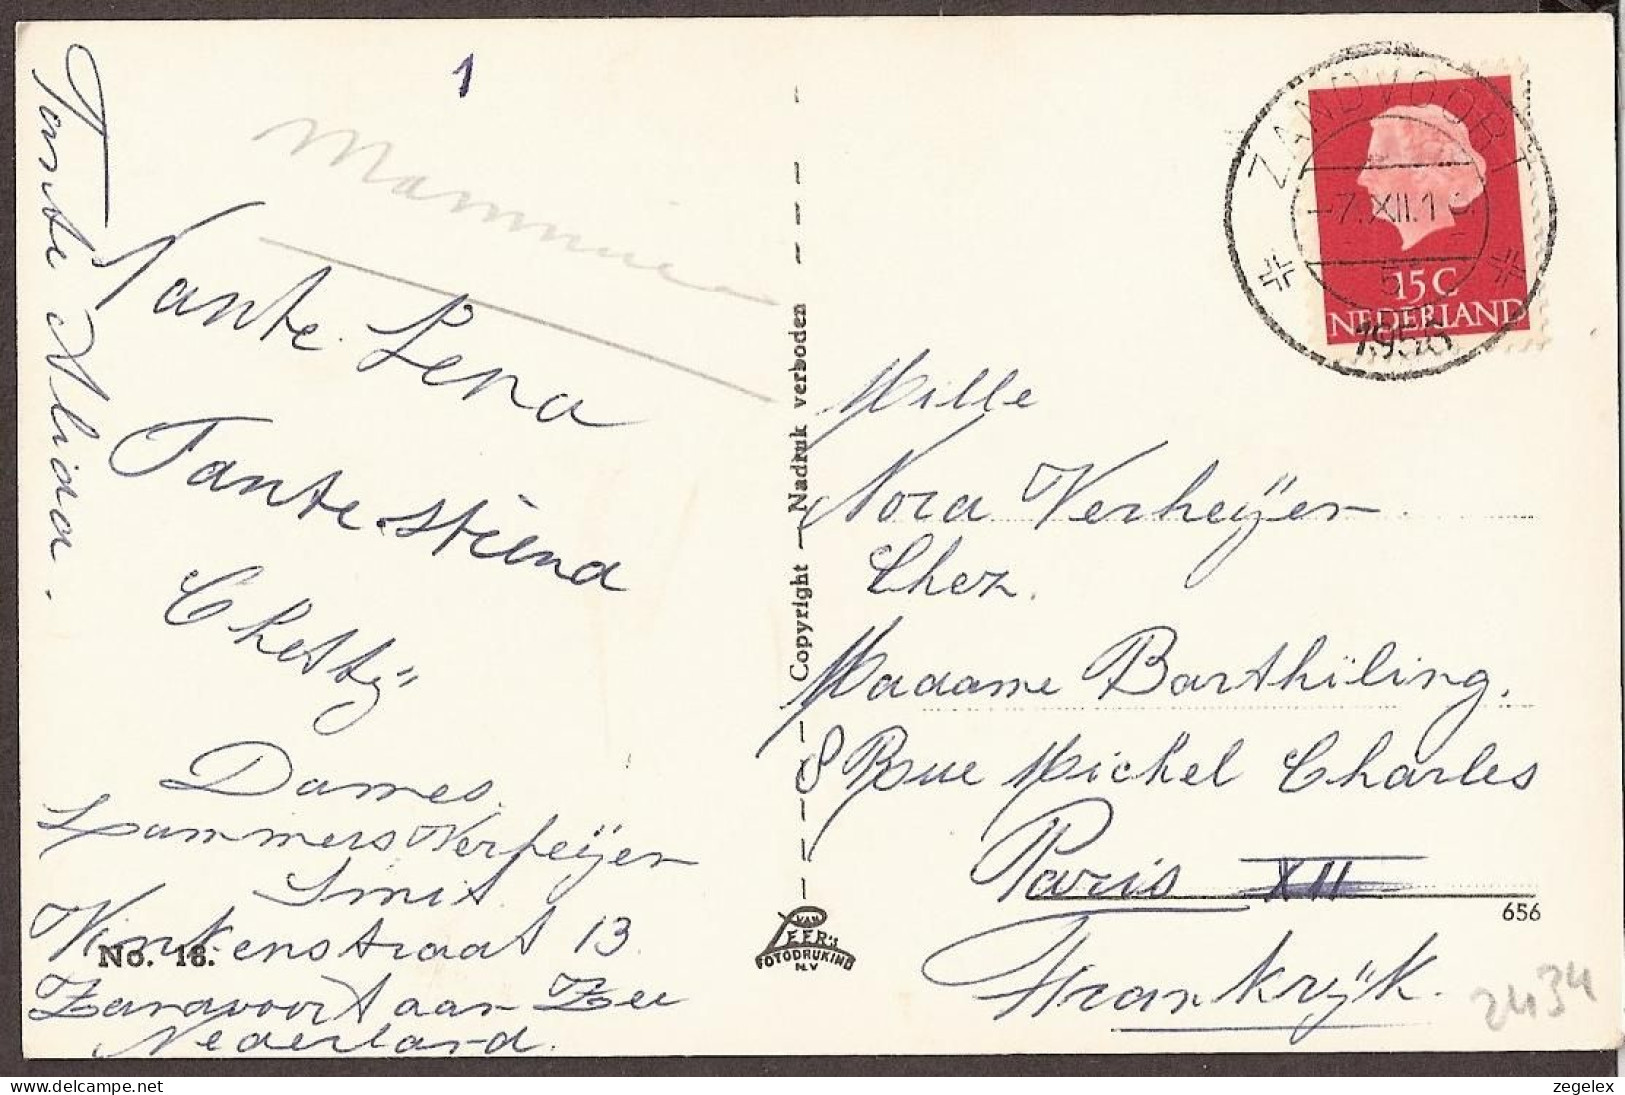 1
Mammie
Tante Alida.
Tante Lena
Tante Stiena
Chetty
Dames
Lammers Verheÿen
Smit
Vinkenstraat 13.
No. 18.
Zandvoort aan Zee
Nederland.
Copyright — Nadruk verboden
VAN
LEER'S
FOTODRUKIND
N.V
ZANDVOORT
-7.XII.1
1955
15 C
NEDERLAND
Mille
Nora Verheÿen
Chez.
Madame Barthïling.
8 Rue Michel Charles
Paris XII
656
Frankrÿk.
2434
zegelex